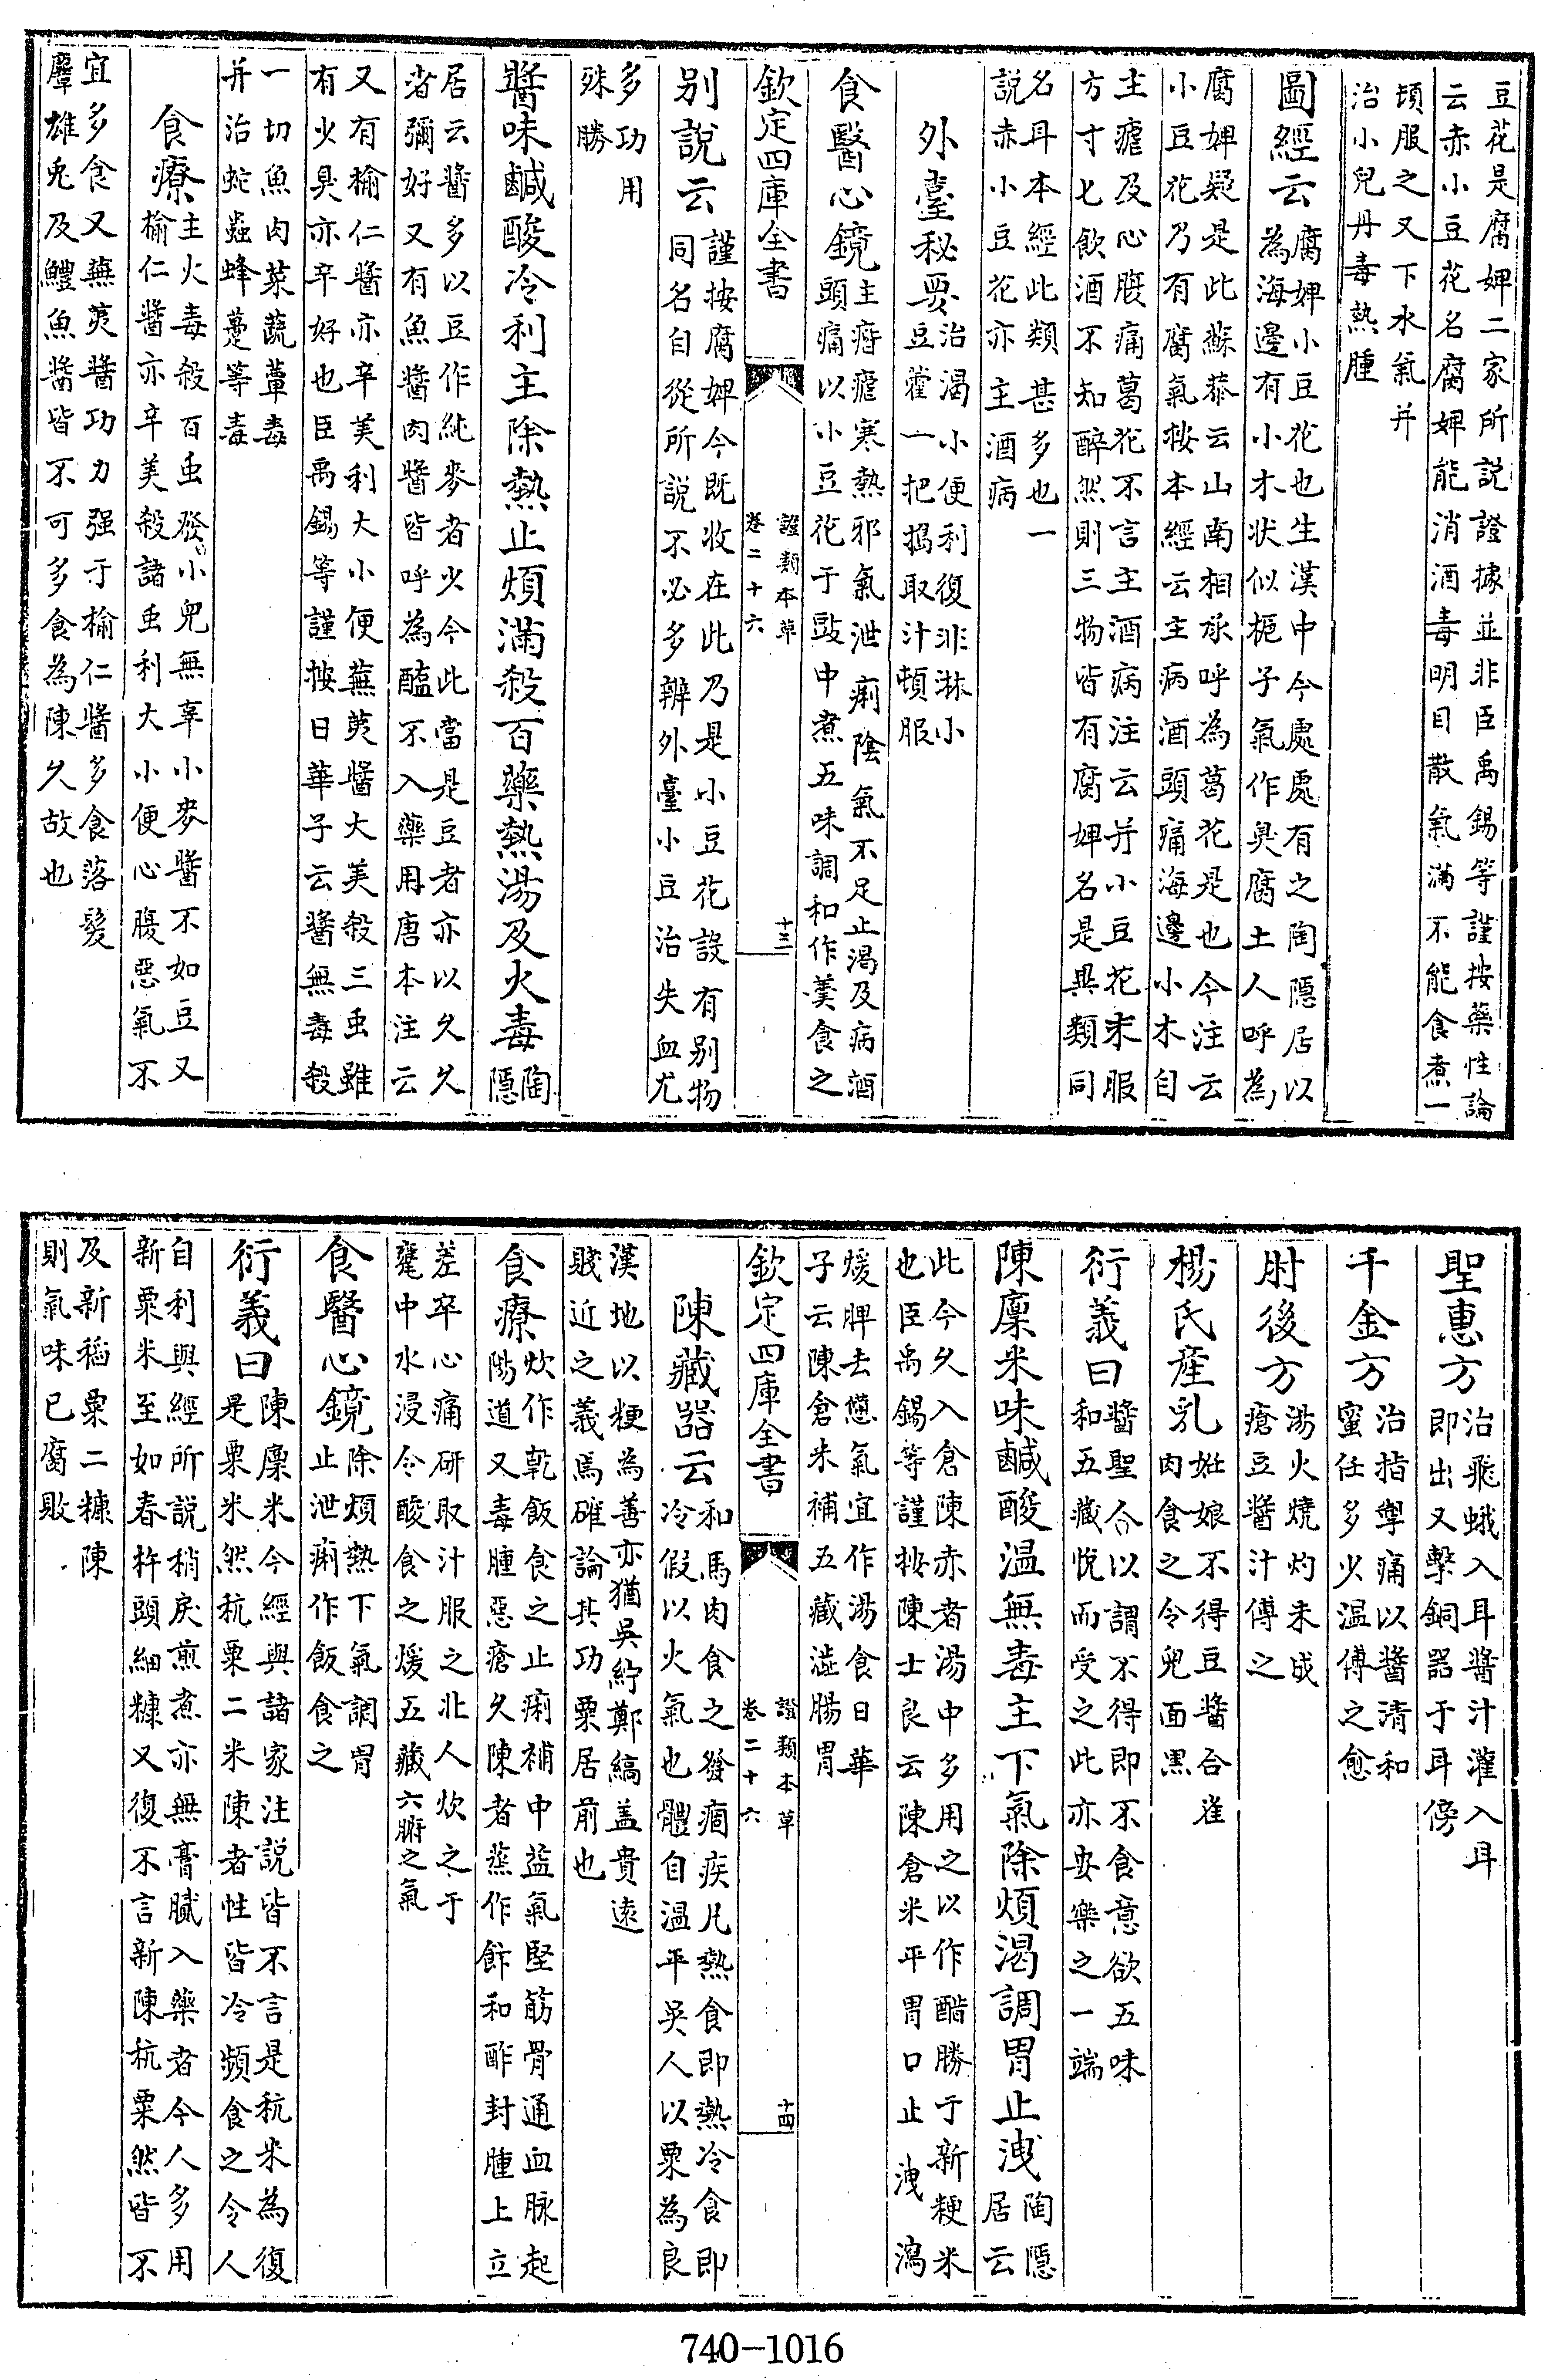 豆花是腐婢二家所説證據並非臣禹錫等謹按藥性論
云赤小豆花名腐婢能消酒毒明目散氣滿不能食煮一
頃服之又下水氣并
治小兒丹毒熱腫
圖經云
腐婢小豆花也生漢中今處處有之陶隱居以
為海邊有小木状似梔子氣作臭腐土人呼為
腐婢疑是此蘇恭云山南相承呼為葛花是也今注云
小豆花乃有腐氣按本經云主病酒頭痛海邊小木自
主瘧及心腹痛葛花不言主酒病注云并小豆花末服
方寸七飲酒不知醉然則三物皆有腐婢名是異類同
名耳本經此類甚多也一
説赤小豆花亦主酒病
外臺秘要
治渴小便利復非淋小
豆藿一把搗取汁頓服
食醫心鏡
主痟瘧寒熱邪氣泄痢陰氣不足止渴及病酒
頭痛以小豆花于豉中煮五味調和作羮食之
欽定四庫全書
證類本草
卷二十六
十三
别説云
謹按腐婢今既收在此乃是小豆花設有别物
同名自從所説不必多辨外臺小豆治失血尤
多功用
殊勝
醬味鹹酸冷利主除熱止煩滿殺百藥熱湯及火毒
陶
隱
居云醬多以豆作純麥者少今此當是豆者亦以久久
者彌好又有魚醬肉醬皆呼為醢不入藥用唐本注云
又有榆仁醬亦辛美利大小便蕪荑醬大美殺三虫雖
有少臭亦辛好也臣禹錫等謹按日華子云醬無毒殺
一切魚肉菜蔬蕈毒
并治蛇蟲蜂蠆等毒
食療
主火毒殺百虫發小兒無辜小麥醬不如豆又
榆仁醬亦辛美殺諸虫利大小便心腹惡氣不
宜多食又蕪荑醬功力强于榆仁醬多食落髮
麞雄兎及鱧魚醬皆不可多食為陳久故也
聖惠方
治飛蛾入耳醬汁灌入耳
即出又擊銅器于耳傍
千金方
治指掣痛以醬清和
蜜任多少温傅之愈
肘後方
湯火燒灼未成
瘡豆醬汁傅之
楊氏産乳
妊娘不得豆醬合雀
肉食之令兒面黒
衍義曰
醬聖人以謂不得即不食意欲五味
和五藏悅而受之此亦安樂之一端
陳廩米味鹹酸温無毒主下氣除煩渴調胃止洩
陶隱
居云
此今久入倉陳赤者湯中多用之以作醋勝于新粳米
也臣禹錫等謹按陳士良云陳倉米平胃口止洩瀉
煖脾去憊氣宜作湯食日華
子云陳倉米補五藏澁腸胃
欽定四庫全書
證類本草
卷二十六
十四
陳藏器云
和馬肉食之發痼疾凡熱食即熱冷食即
冷假以火氣也體自温平吳人以粟為良
漢地以粳為善亦猶吳紵鄭縞盖貴遠
賤近之義焉確論其功粟居前也
食療
炊作乾飯食之止痢補中益氣堅筋骨通血脉起
陽道又毒腫惡瘡久陳者蒸作飰和酢封腫上立
差卒心痛研取汁服之北人炊之于
甕中水浸令酸食之煖五藏六腑之氣
食醫心鏡
除煩熱下氣調胃
止泄痢作飯食之
衍義曰
陳廩米今經與諸家注説皆不言是秔米為復
是粟米然秔粟二米陳者性皆冷頻食之令人
自利與經所説稍戾煎煮亦無膏膩入藥者今人多用
新粟米至如舂杵頭細糠又復不言新陳秔粟然皆不
及新稻粟二糠陳
則氣味已腐敗
740-1016